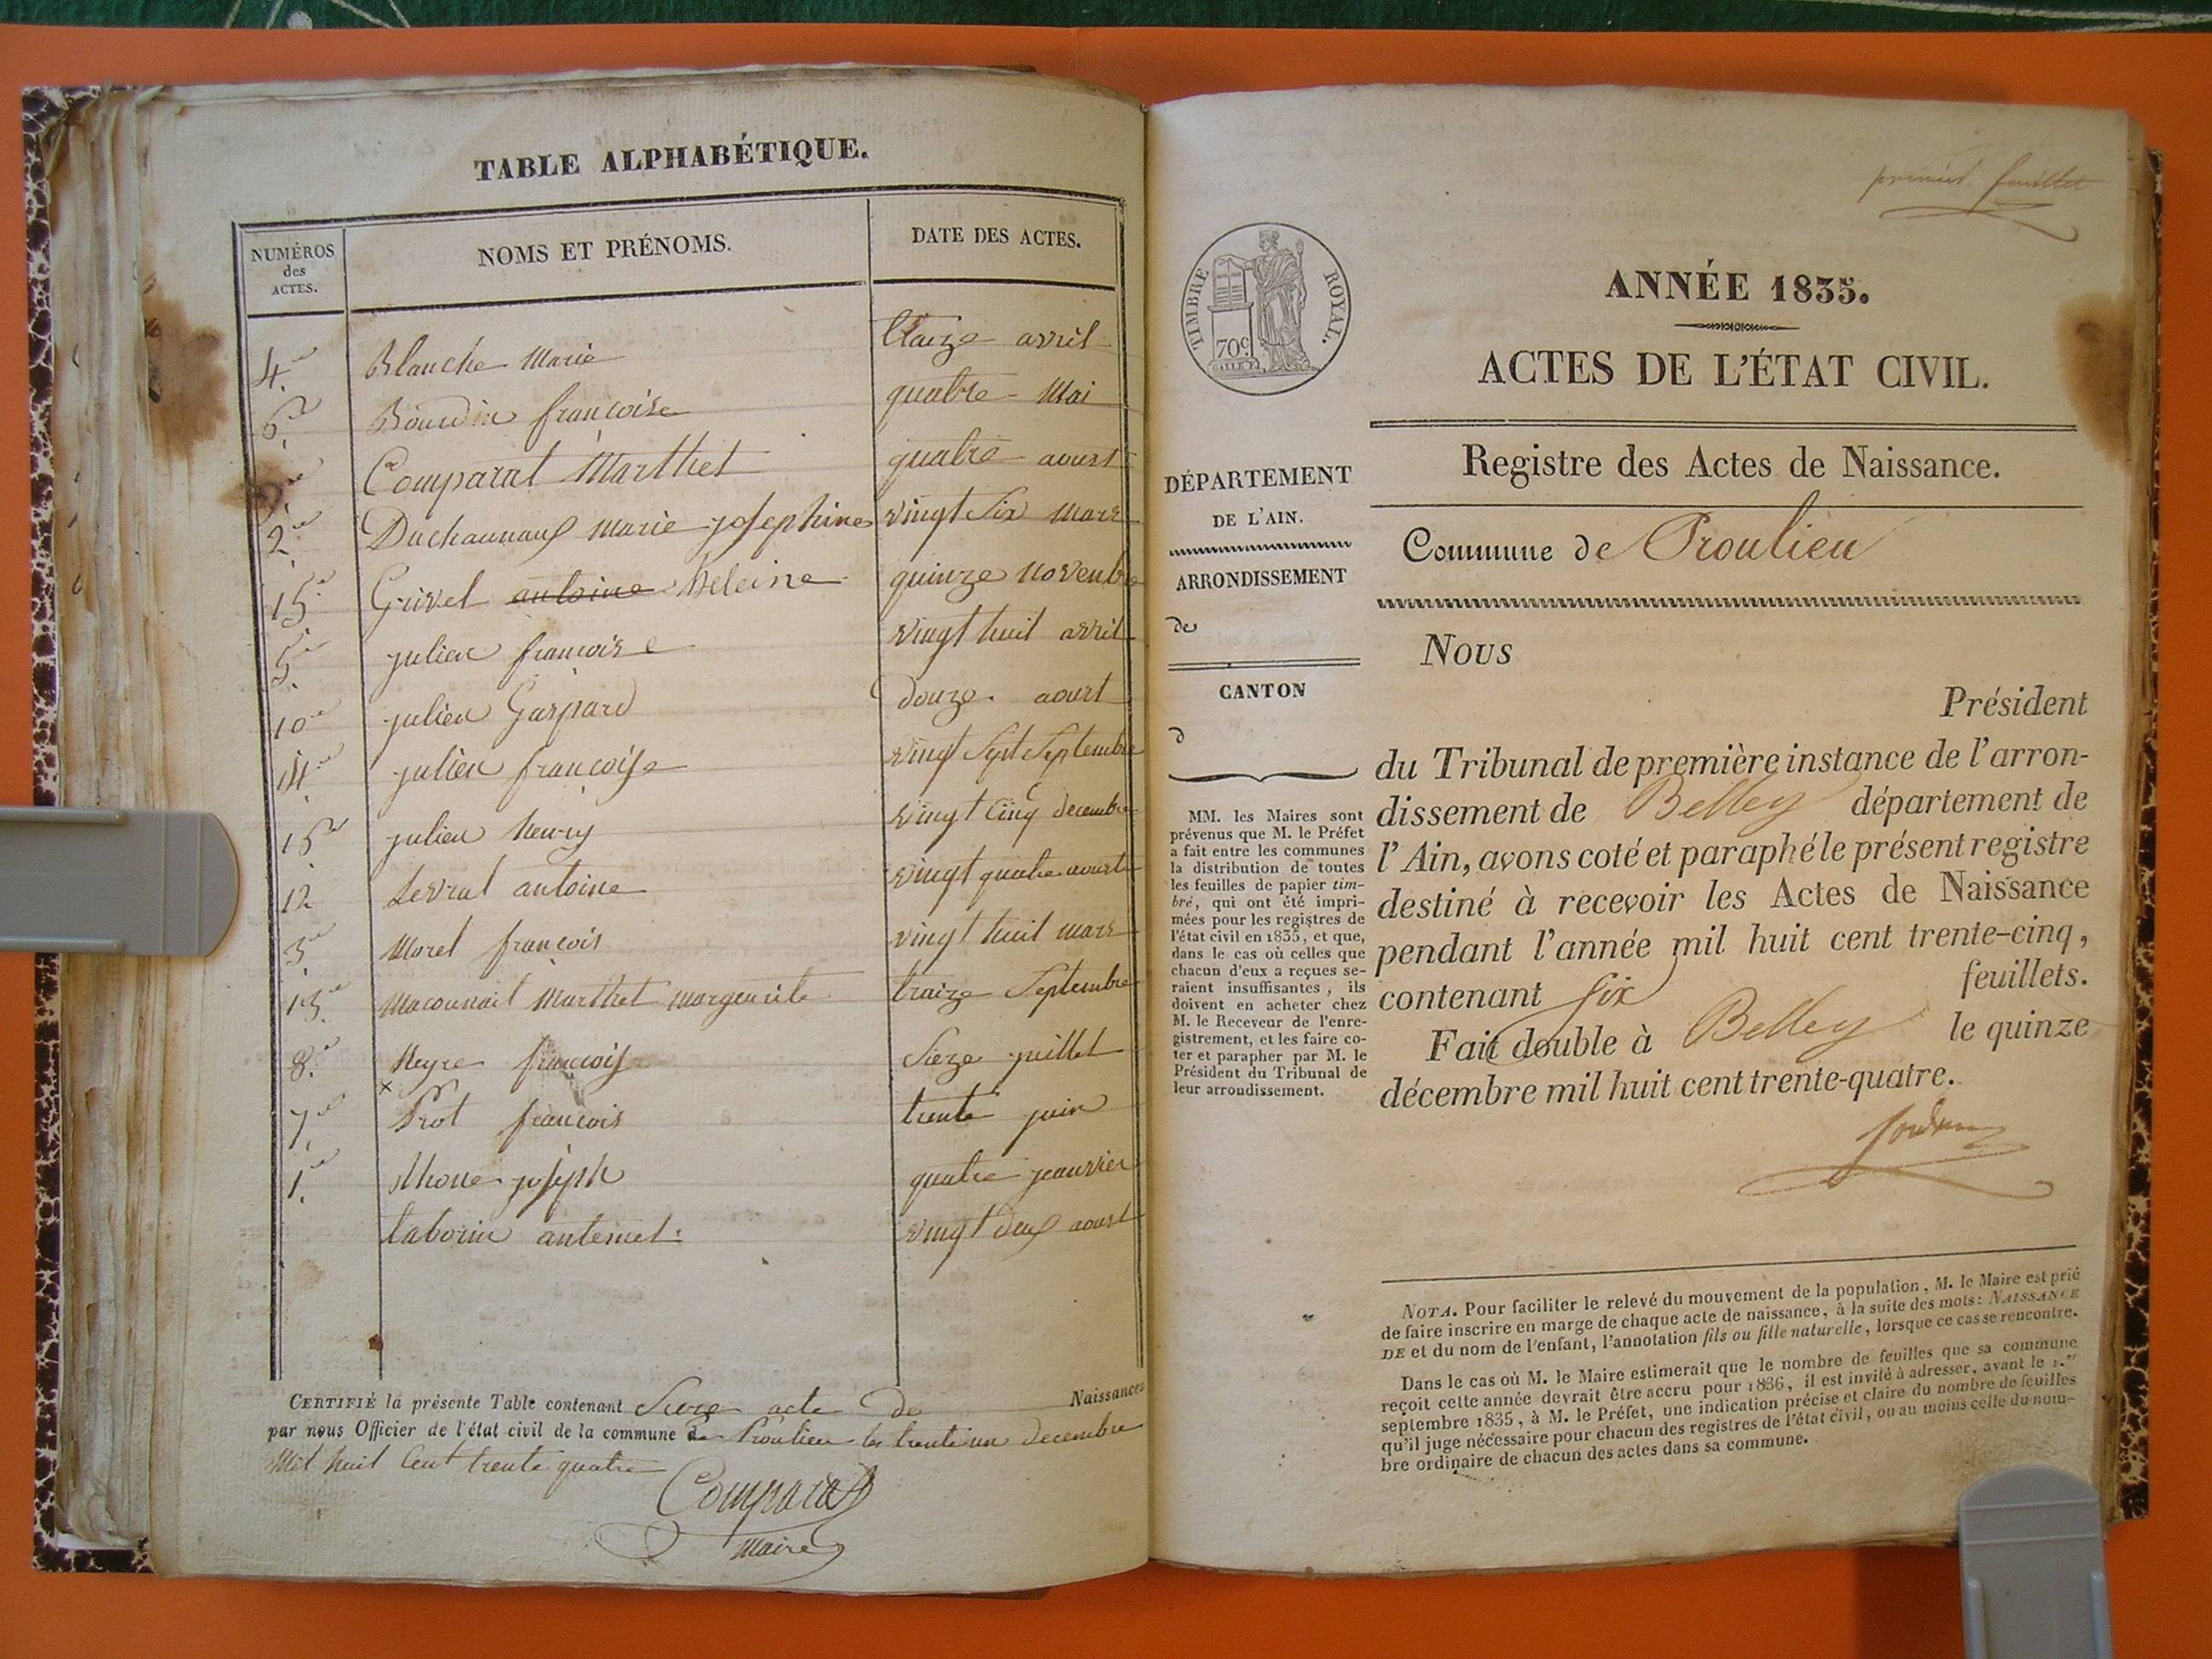 TABLE ALPHABÉTIQUE.
NUMÉROS des ACTES. NOMS ET PRÉNOMS. DATE DES ACTES.
4.e Blanche Marie traize avril
6.e Boudin françoise quatre Mai
Comparat Marthet quatre aoust
2.e Duchaunauf marie josephine vingt Six Mars
15.e Grivel antoine heleine quinze Novembre
5.e julien françoise vingt huit avril
10.e julien Gaspard douze aoust
14.e julien françoise vingt Sept Septembre
15.e julien henry vingt cinq decembre
12 Levrat antoine vingt quatre aoust
3.e Moret françois vingt huit mars
13.e Maconnait Marthet Margeurite traize Septembre
8.e Neyre françoise Sieze juillet
x
7.e Prot françois trente juin
1.e Rhone joseph quatre jeanvier
taborin antemet: vingt deux aoust
CERTIFIÉ la présente Table contenant Sieze acte de Naissances
par nous Officier de l'état civil de la commune de Proulieu le trente un decembre
Mil huit Cent trente quatre
Comparat
Maire
premier feuillet
TIMBRE ROYAL.
70c
ANNÉE 1835.
ACTES DE L'ÉTAT CIVIL.
Registre des Actes de Naissance.
DÉPARTEMENT
DE L'AIN.
ARRONDISSEMENT
de
CANTON
d
MM. les Maires sont
prévenus que M. le Préfet
a fait entre les communes
la distribution de toutes
les feuilles de papier tim-
bré, qui ont été impri-
mées pour les registres de
l'état civil en 1835, et que,
dans le cas où celles que
chacun d'eux a reçues se-
raient insuffisantes, ils
doivent en acheter chez
M. le Receveur de l'enre-
gistrement, et les faire co-
ter et parapher par M. le
Président du Tribunal de
leur arrondissement.
Commune de Proulieu
Nous
Président
du Tribunal de première instance de l'arron-
dissement de Belley département de
l'Ain, avons coté et paraphé le présent registre
destiné à recevoir les Actes de Naissance
pendant l'année mil huit cent trente-cinq,
contenant Six feuillets.
Fait double à Belley le quinze
décembre mil huit cent trente-quatre.
NOTA. Pour faciliter le relevé du mouvement de la population, M. le Maire est prié
de faire inscrire en marge de chaque acte de naissance, à la suite des mots: NAISSANCE
DE et du nom de l'enfant, l'annotation fils ou fille naturelle, lorsque ce cas se rencontre.
Dans le cas où M. le Maire estimerait que le nombre de feuilles que sa commune
reçoit cette année devrait être accru pour 1836, il est invité à adresser, avant le 1.er
septembre 1835, à M. le Préfet, une indication précise et claire du nombre de feuilles
qu'il juge nécessaire pour chacun des registres de l'état civil, ou au moins celle du nom-
bre ordinaire de chacun des actes dans sa commune.